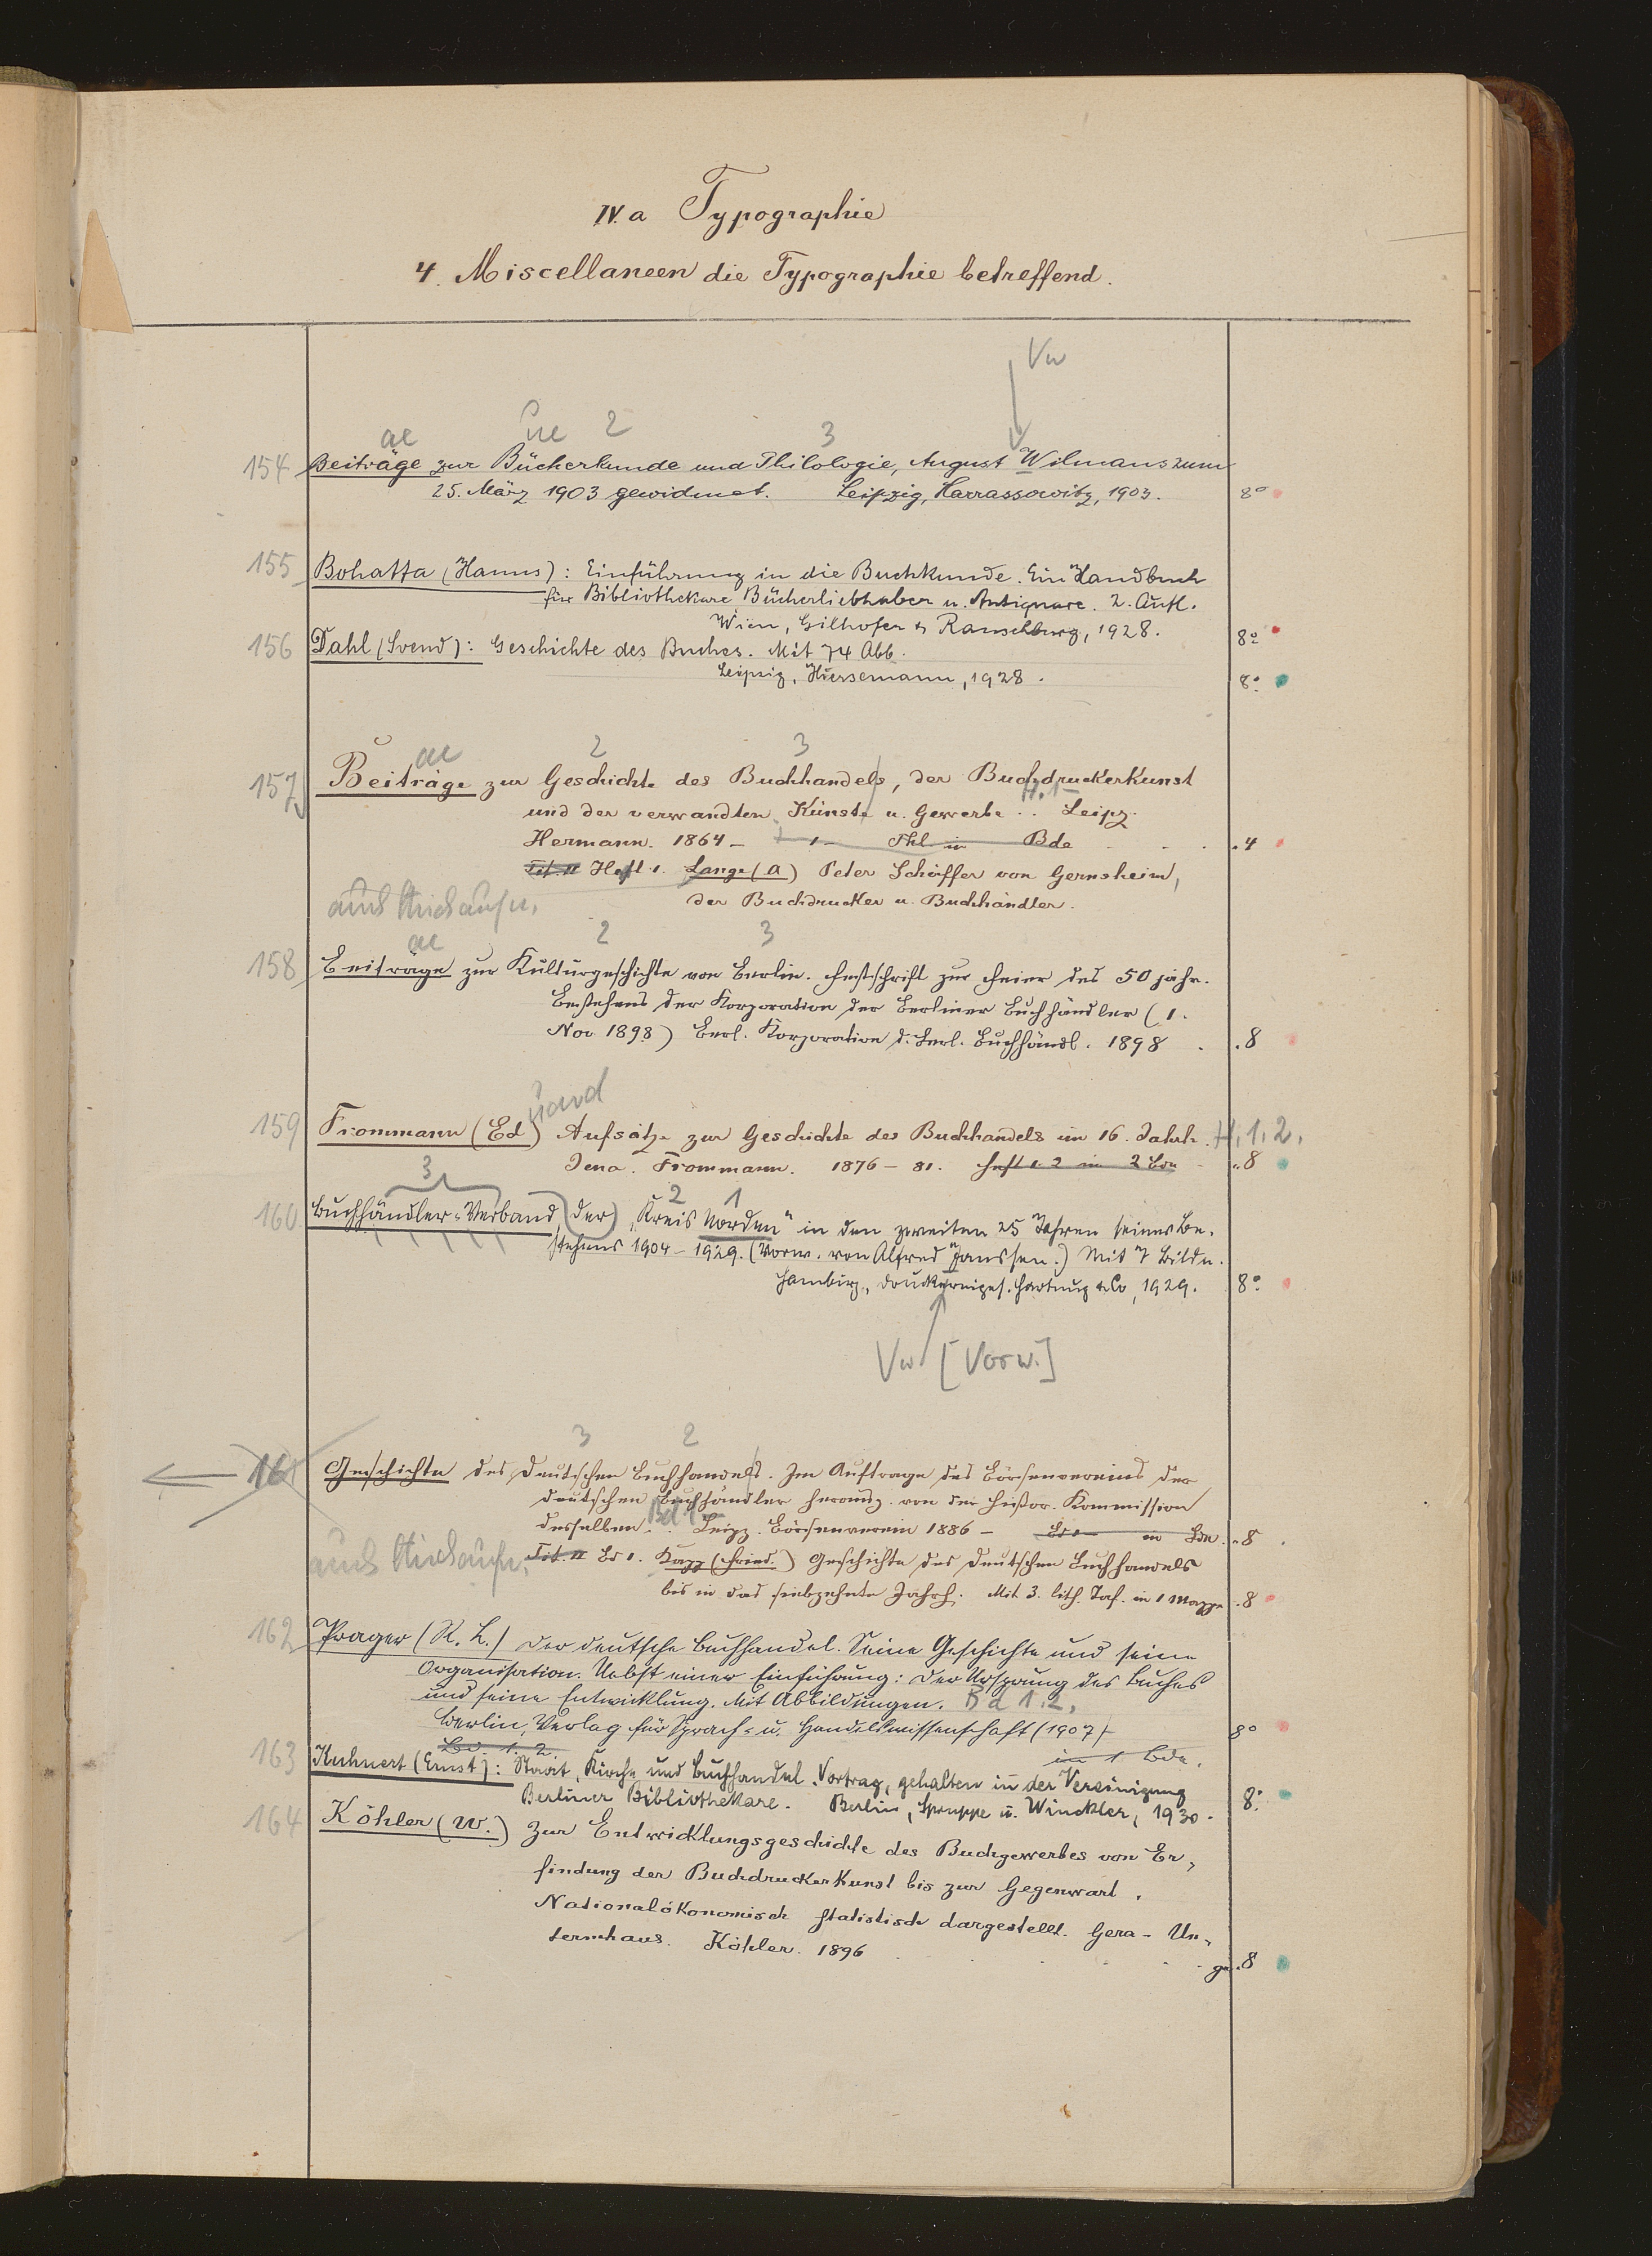 IV. a Typographie
4. Miscellaneen die Typographie betreffend.
Vw
ae ue 2 3
154 Beiträge zur Bücherkunde und Philologie, August Wilmans zum
25. März 1903 gewidmet. Leipzig, Harrassowitz, 1903. 8°
155 Bohatta (Hanns): Einführung in die Buchkunde. Ein Handbuch
für Bibliothekare, Bücherliebhaber u. Antiquare. 2. Aufl.
Wien, Gilhofer & Ranschburg, 1928. 8°
156 Dahl (Svend): Geschichte des Buches. Mit 74 Abb.
Leipzig, Hiersemann, 1928. 8°
ae 2 3
157 Beiträge zur Geschichte des Buchhandels, der Buchdruckerkunst
H. 1-
und der verwandten Künste u. Gewerbe .. Leipz.
Hermann. 1864 - 1- Thl. in Bde . 4
Tit. II Heft 1. Lange (A) Peter Schöffer von Gernsheim,
der Buchdrucker u. Buchhändler.
auch Stück aufn.
ae 2 3
158 Beiträge zur Kulturgeschichte von Berlin. Festschrift zur Feier des 50 jähr.
Bestehens der Korporation der Berliner Buchhändler (1.
Nov 1898) Berl. Korporation d. Berl. Buchhändl. 1898 . 8
159 Frommann (Ed) Aufsätze zur Geschichte des Buchhandels im 16. Jahrh. H. 1. 2.
Jena. Frommann. 1876 - 81. Heft 1. 2 in 2 Bdn . 8
3 2 1
160 Buchhändler-Verband, (der) „Kreis Norden“ in den zweiten 25 Jahren seines Be-
stehens 1904 - 1929. (Vorw. von Alfred Janssen.) Mit 7 Bildn.
Hamburg, Druckereiges. Hartung & Co, 1929. 8°
Vw [Vorw.]
3 2
161 Geschichte des Deutschen Buchhandels. Im Auftrage des Börsenvereins der
deutschen Buchhändler herausg. von der histor. Kommission
Bd 1-
desselben. Leipz. Börsenverein 1886 - Bd 1 - in Bdn . 8
auch Stück aufn.
Tit. II Bd 1. Kapp (Fried.) Geschichte des Deutschen Buchhandels
bis in das siebzehnte Jahrh. Mit 3. lith. Taf. in 1 Mappe . 8
162 Prager (R. L.) Der deutsche Buchhandel. Seine Geschichte und seine
Organisation. Nebst einer Einführung: Der Ursprung des Buches
und seine Entwicklung. Mit Abbildungen. Bd 1. 2.
Berlin, Verlag für Sprach- u. Handelswissenschaft (1907) 8°
Bd. 1. 2. in 1 Bde.
163 Kuhnert (Ernst): Staat, Kirche und Buchhandel. Vortrag, gehalten in der Vereinigung
Berliner Bibliothekare. Berlin, Struppe u. Winckler, 1930. 8°
164 Köhler (W.) Zur Entwicklungsgeschichte des Buchgewerbes von Er-
findung der Buchdruckerkunst bis zur Gegenwart.
Nationalökonomisch statistisch dargestellt. Gera - Un-
termhaus. Köhler. 1896 gr. 8